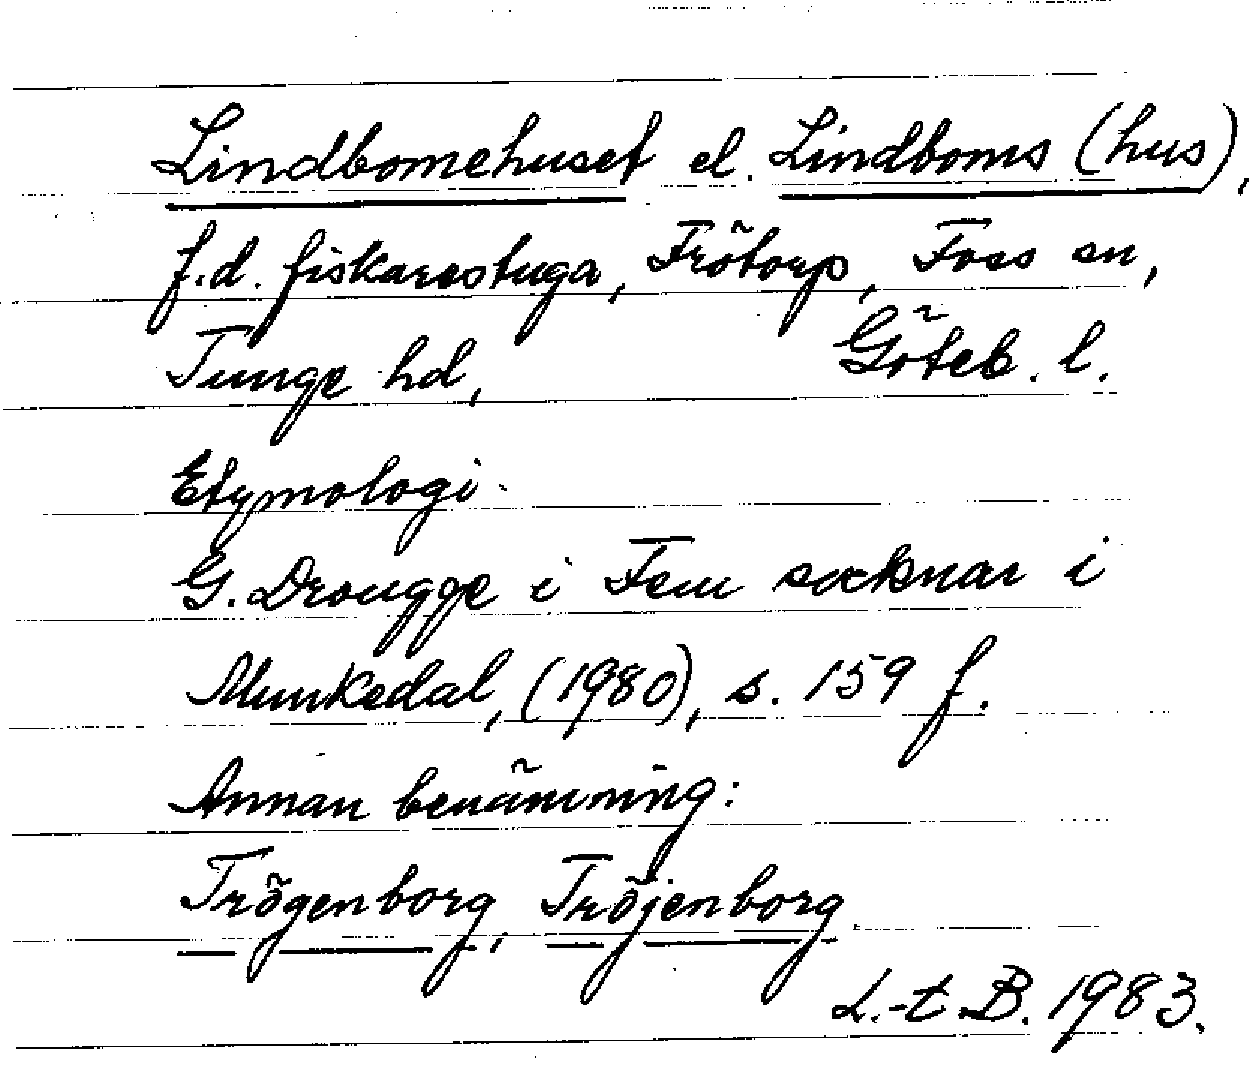 Lindbomehuset el. Lindboms (hus),
f.d. fiskarestuga, Frötorp, Foss sn,
Tunge hd, Göteb. l.
Etymologi.
G. Drougge i Fem socknar i
Munkedal, (1980), s. 159 f.
Annan benämning:
Trögenborg, Tröjenborg.
L.-t B. 1983.